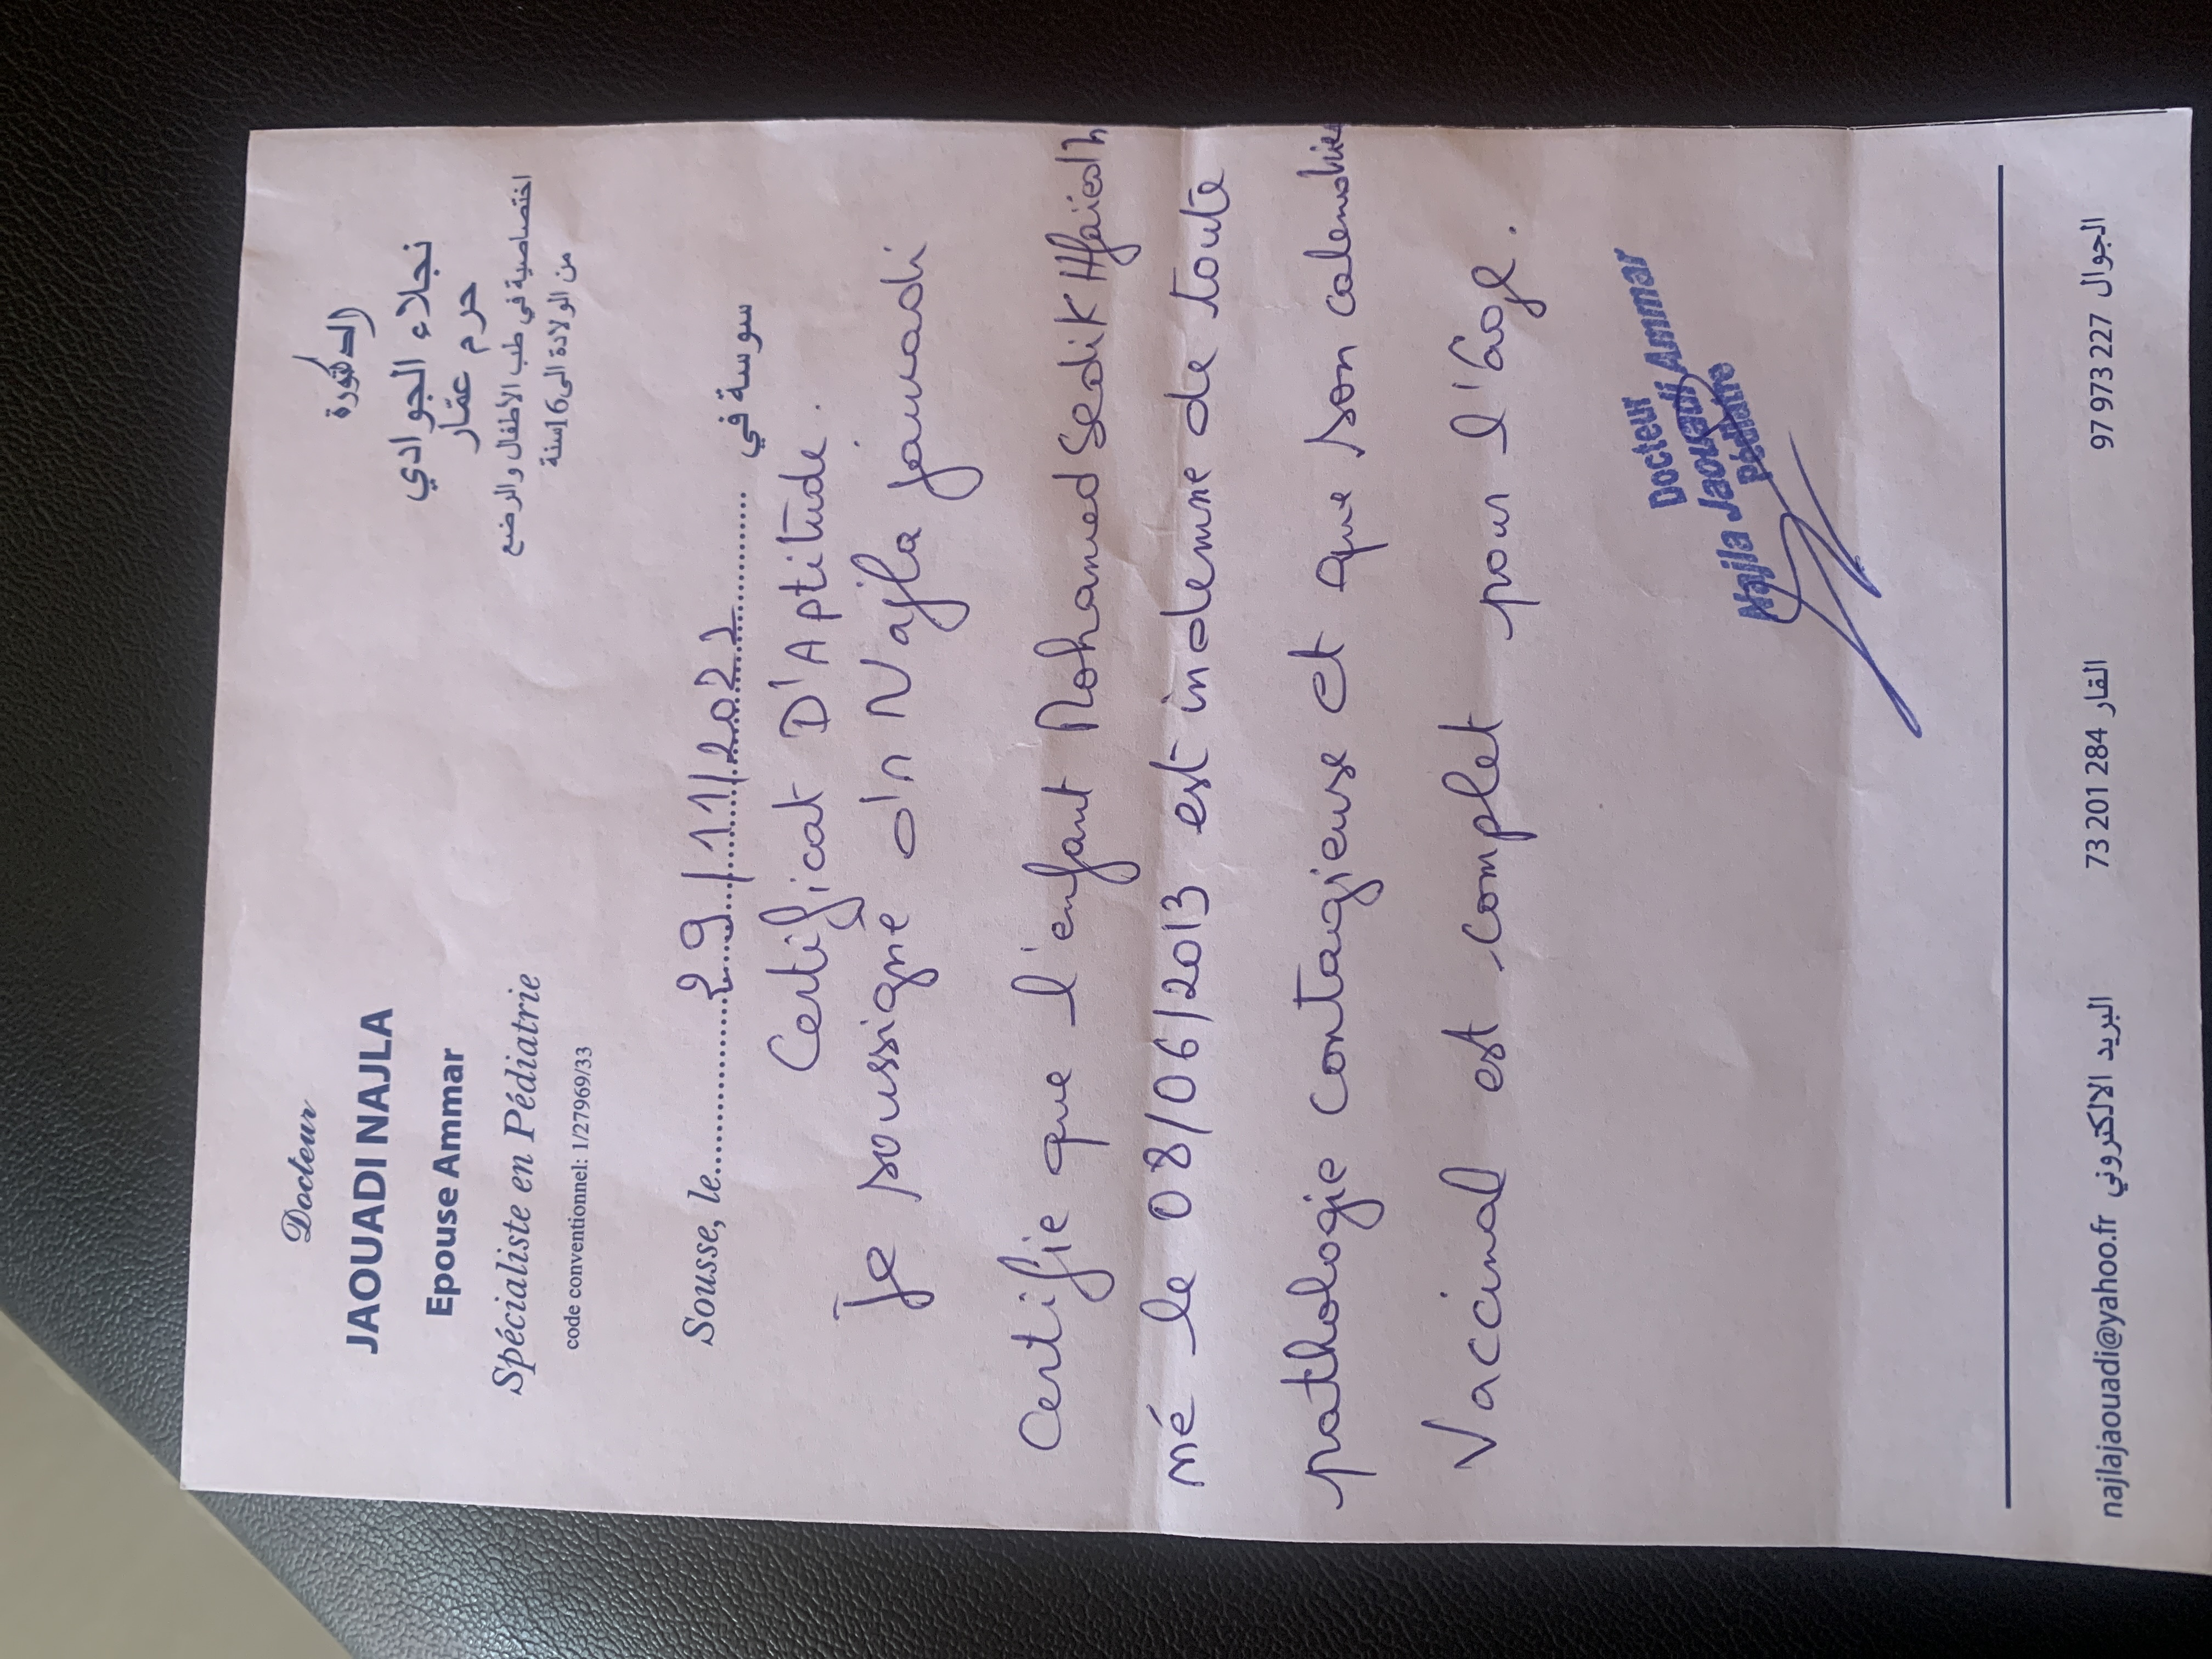 Docteur
JAOUADI NAJLA
Epouse Ammar
Spécialiste en Pédiatrie
code conventionnel: 1/27969/33
الدكتورة
نجلاء الجوادي
حرم عمّار
اختصاصية في طب الأطفال والرضع
من الولادة الى 16 سنة
Sousse, le 29/11/2021 سوسة في
Certificat D'Aptitude.
Je soussigne Dr Najla jaouadi
Certifie que l'enfant Mohamed Sedik Hfaiedh
né le 08/06/2013 est indemne de toute
pathologie contagieuse et que son calendrier
Vaccinal est complet pour l'âge.
Docteur
Najla Jaouadi Ammar
Pédiatre
najlajaouadi@yahoo.fr البريد الالكتروني 73 201 284 القار 97 973 227 الجوال